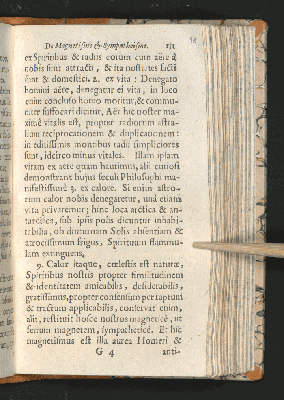 De Magnetismo & Sympatheismo. 151
ex Spiritus & radiis eorum cum aëre à
nobis sunt attracti, & ita nostri facti
sunt & domestici. 2. ex vita: Denegato
homini aëre, denegatur ei vita, in loco
enim concluso homo moritur, & commu-
niter suffocari dicitur, Aër hic noster ma-
ximè vitalis est, propter radiorum astra-
lium reciprocationem & duplicationem:
in editissimis montibus radii simpliciores
sunt, idcirco minus vitales. Illam ipsam
vitam ex aëre quam hautimus, alii curiosi
demonstrant hujus seculi Philosophi ma-
nifestissimè 3. ex calore. Si enim astro-
rum calor nobis denegaretur, unà etiam
vita privaremur; hinc loca arctica & an-
tarctica, sub ipsis polis dicuntur inhabi-
tabilia, ob diuturnam Solis absentiam &
atrocissimum frigus, Spirituum flammu-
lam extinguens,
9. Calor itaque, coelestis est naturæ,
Spiritibus nostris propter similitudinem
& identitatem amicabilis, desiderabilis,
gratissimus, propter consensum per raptum
& tractum applicabilis, conservat enim,
alit, restituit hosce nostros magneticè, ut
ferrum magnetem, sympatheticè. Et hic
magnetismus est illa aurea Homeri &
G 4 anti-